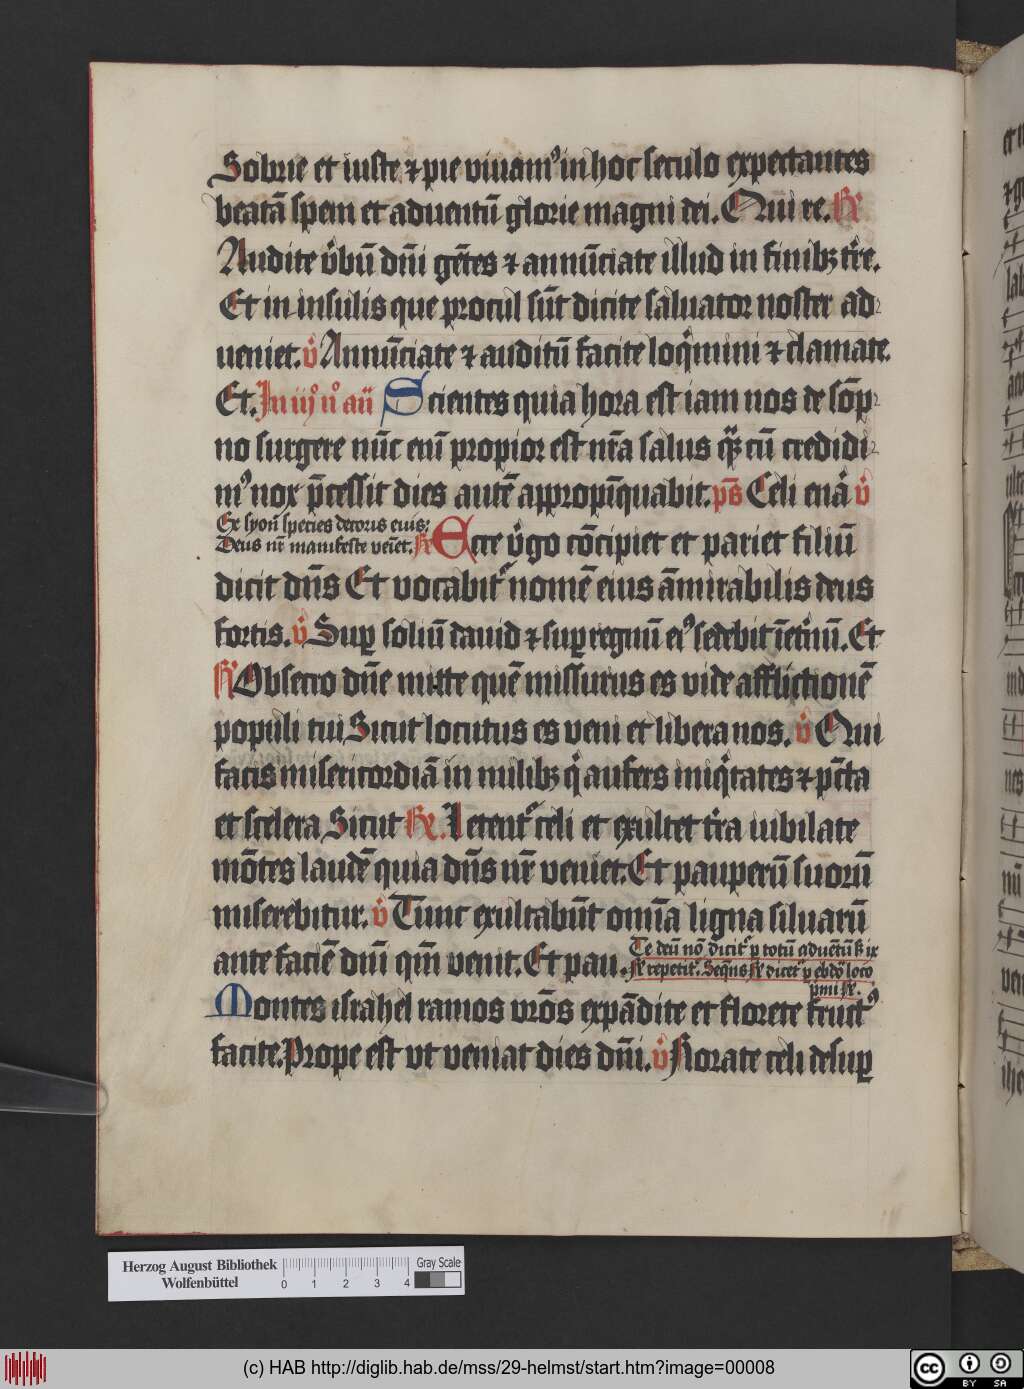 Sobrie et iuste ⁊ pie viuamꝰ in hoc seculo expectantes
beatā spem et aduentū glorie magni dei. Qui re. R̄
Audite v̓bū dn̄i gētes ⁊ annūciate illud in finibꝫ tr̓e.
Et in insulis que procul sūt dicite saluator noster ad⸗
ueniet. v̓ Annūciate ⁊ auditū facite loqͥmini ⁊ clamate.
Et. In iijꝰ nͦ an̄ Scientes quia hora est iam nos de sōp⸗
no surgere nūc enī propior est nr̄a salus qͣꝫ cū credidi⸗
mꝰ nox p̄cessit dies autē appropīquabit. ps̄ Celi enā v̓
Ex syon̄ species decoris eius:
Deus nr̄ manifeste veīet. R̄ Ecce v̓go cōcipiet et pariet filiū
dicit dn̄s Et vocabit᷑ nomē eius āmirabilis deus
fortis. v̓ Suꝑ soliū dauid ⁊ suꝑ regnū eiꝰ sedebit īet̓nū. Et
R̄ Obsecro dn̄e mitte quē missurus es vide afflictionē
populi tui Sicut locutus es veni et libera nos. v̓ Qui
facis misericordiā in milibꝫ qͥ aufers iniqͥtates ⁊ pc̄ta
et scelera Sicut R̄. Letent᷑ celi et exultet tr̓a iubilate
mōtes laudē quia dn̄s nr̄ veniet. Et pauperū suorū
miserebitur. v̓ Tunc exultabūt omīa ligna siluarū
ante faciē dnī qm̄ venit. Et pau. Te deū nō dicit᷑ ꝑ totū aduētū ix
R̄ repetit᷑. Seqn̄s R̄ dicet᷑ ꝑ ebdōͣ loco
pͥmi R̄.
Montes israhel ramos vr̄os expādite et florete fructꝰ
facite. Prope est vt veniat dies dn̄i. v̓ Rorate celi desuꝑ
Herzog August Bibliothek
Wolfenbüttel
0 1 2 3 4
Gray Scale
(c) HAB http://diglib.hab.de/mss/29-helmst/start.htm?image=00008
cc BY SA